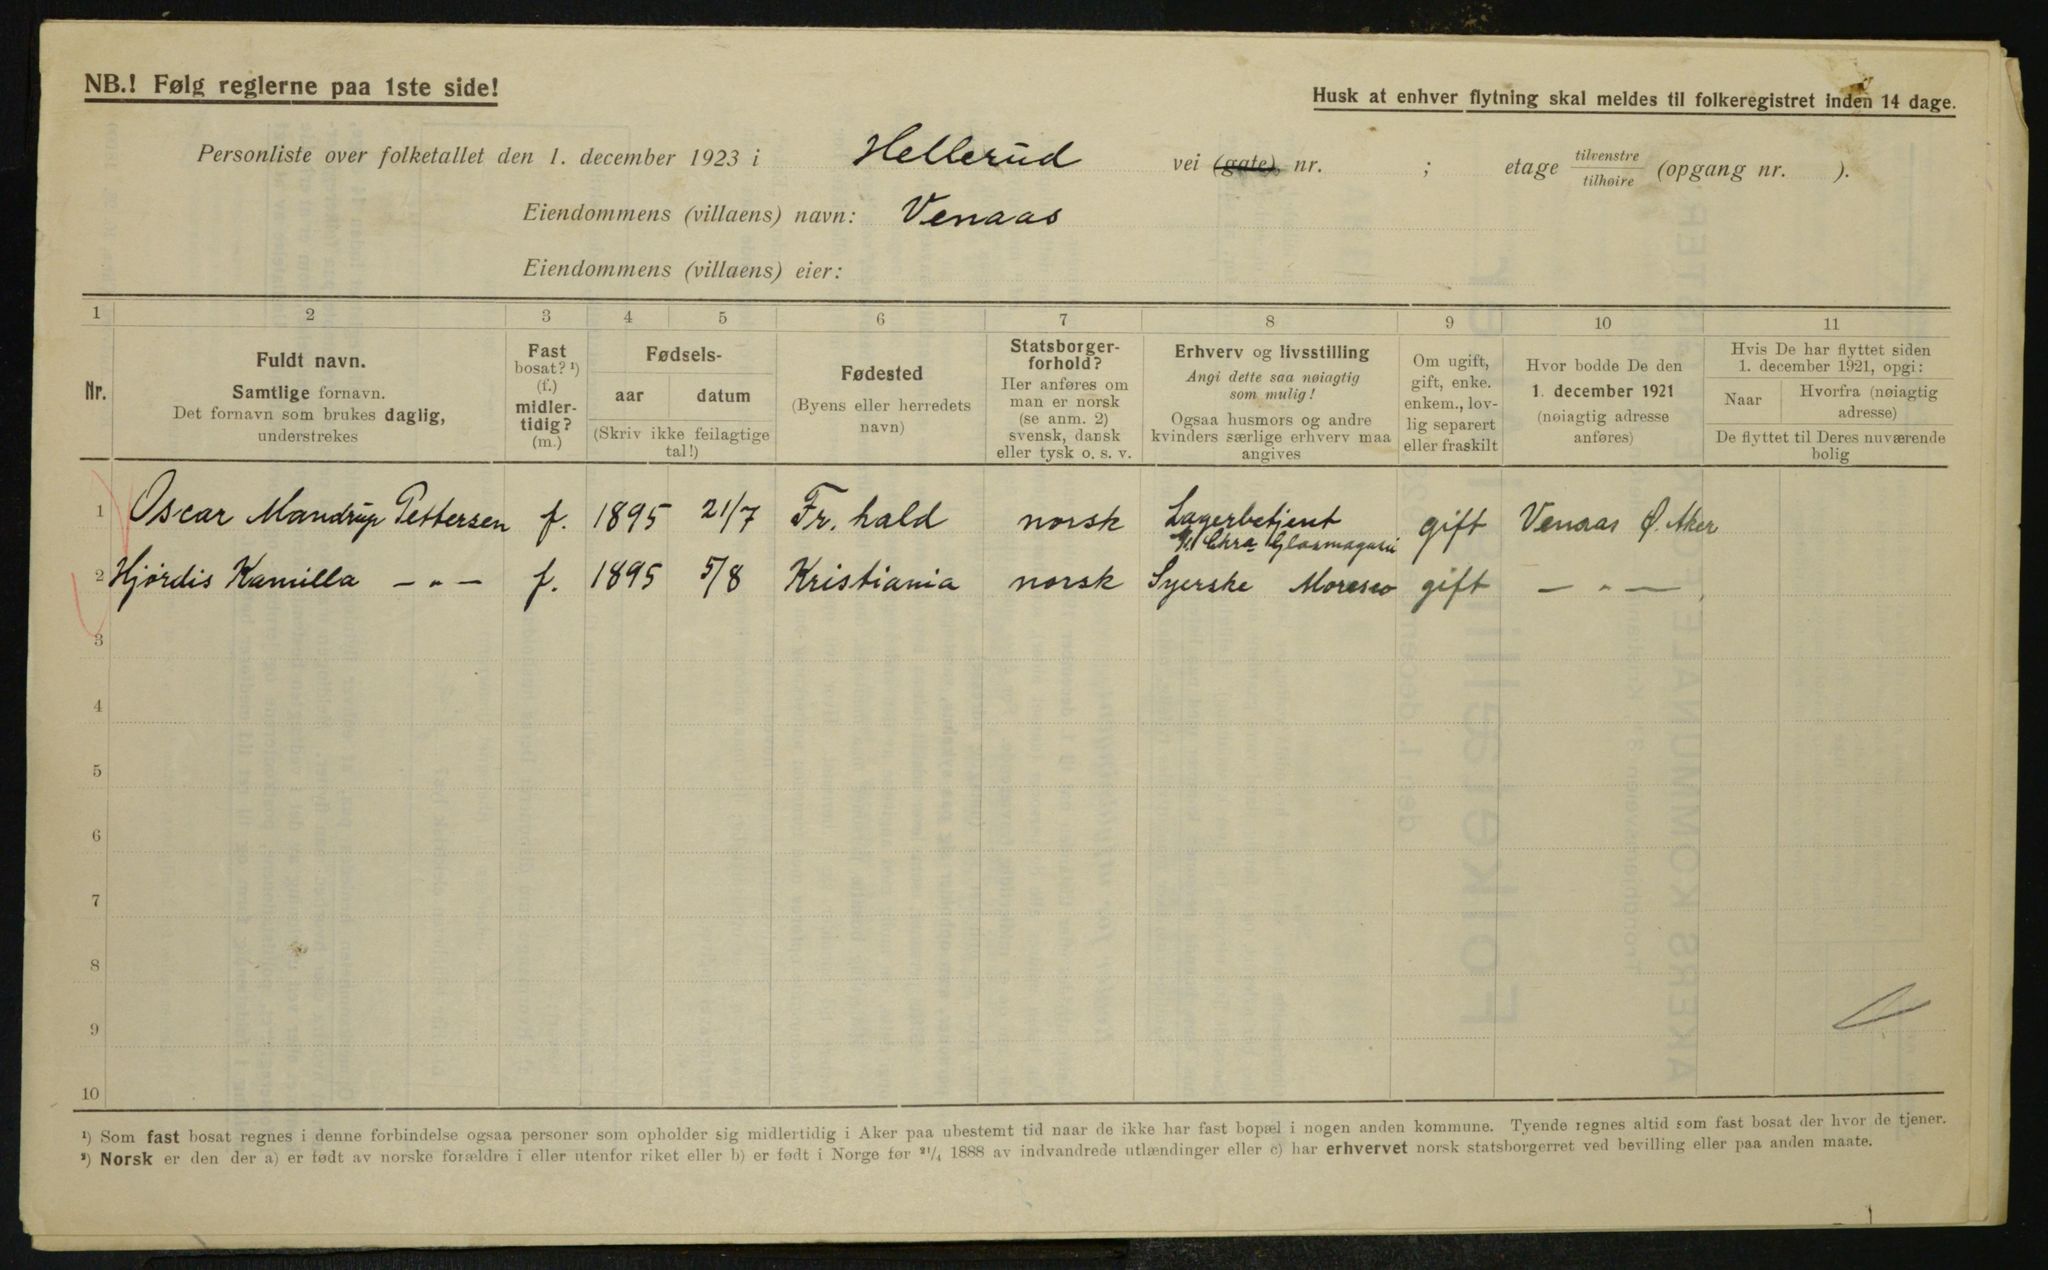 NB.! Følg reglerne paa 1ste side!
Husk at enhver flytning skal meldes til folkeregistret inden 14 dage.
Personliste over folketallet den 1. december 1923 i Hellerud vei (gate), nr. ; etage tilvenstre/tilhøire (opgang nr. ).
Eiendommens (villaens) navn: Venaas
Eiendommens (villaens) eier:
1 2 3 4 5 6 7 8 9 10 11
Nr.
Fuldt navn.
Samtlige fornavn.
Det fornavn som brukes daglig,
understrekes
Fast
bosat? ¹)
(f.)
midler-
tidig?
(m.)
Fødsels-
aar datum
(Skriv ikke feilagtige
tal!)
Fødested
(Byens eller herredets
navn)
Statsborger-
forhold?
Her anføres om
man er norsk
(se anm. 2)
svensk, dansk
eller tysk o. s. v.
Erhverv og livsstilling
Angi dette saa nøiagtig
som mulig!
Ogsaa husmors og andre
kvinders særlige erhverv maa
angives
Om ugift,
gift, enke.
enkem., lov-
lig separert
eller fraskilt
Hvor bodde De den
1. december 1921
(nøiagtig adresse
anføres)
Hvis De har flyttet siden
1. december 1921, opgi:
Naar Hvorfra (nøiagtig
adresse)
De flyttet til Deres nuværende
bolig
1 Oscar Mandrup Pettersen f. 1895 21/7 Fr. hald norsk Lagerbetjent gift Venaas Ø. Aker
Chra Glasmagasin
2 Hjørdis Kamilla — " — f. 1895 5/8 Kristiania norsk Syerske Moreseo gift — " —
3
4
5
6
7
8
9
10
¹) Som fast bosat regnes i denne forbindelse ogsaa personer som opholder sig midlertidig i Aker paa ubestemt tid naar de ikke har fast bopæl i nogen anden kommune. Tyende regnes altid som fast bosat der hvor de tjener.
²) Norsk er den der a) er født av norske forældre i eller utenfor riket eller b) er født i Norge før 21/4 1888 av indvandrede utlændinger eller c) har erhvervet norsk statsborgerret ved bevilling eller paa anden maate.